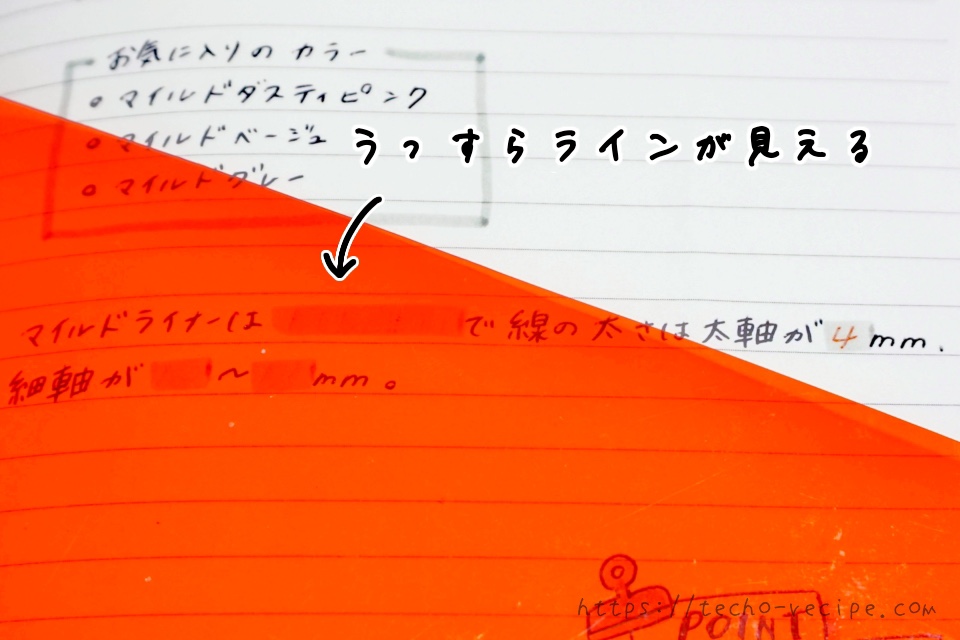 お気に入りのカラー
マイルドダスティピンク
マイルドベージュ
マイルドグレー
うっすらラインが見える
マイルドライナーは で線の太さは太軸が4mm.
細軸が ～ mm。
POINT
https://techo-recipe.com